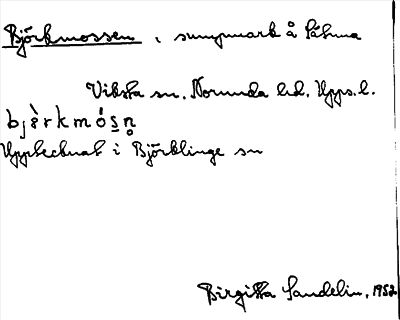 Björkmossen, sumpmark å Påhma
Viksta sn. Norunda hd. Upps.l.
bjèrkmósn̥
Upptecknat i Björklinge sn
Birgitta Sandelin, 1952